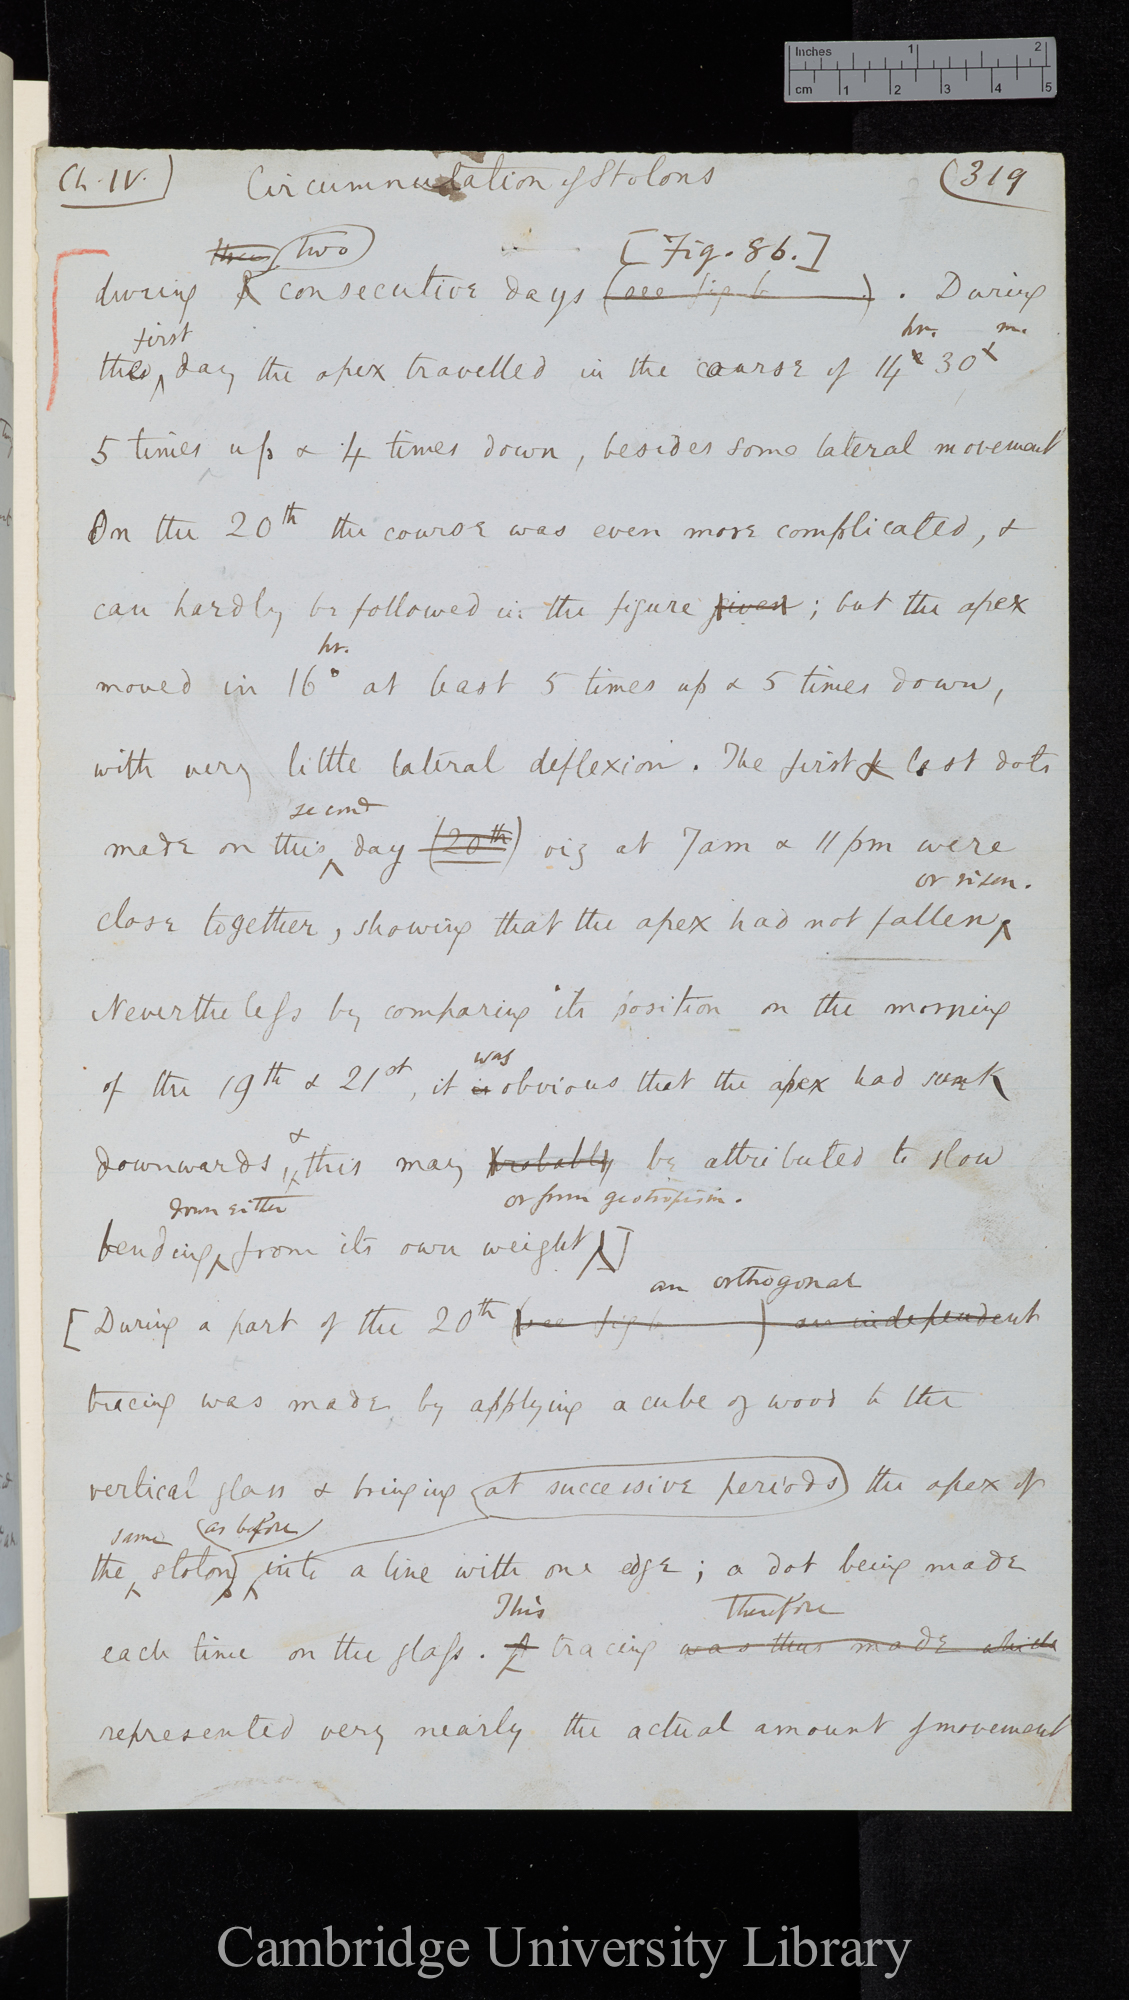 Inches 1 2
cm 1 2 3 4 5
Ch. IV.) Circumnutation of Stolons (319
three two [Fig. 86.]
during consecutive days (see fig b ) . During
first hr. m.
the day the apex travelled in the course of 14 30
5 times up & 4 times down, besides some lateral movement
On the 20th the course was even more complicated, &
can hardly be followed in the figure given ; but the apex
hr.
moved in 16 at least 5 times up & 5 times down,
with very little lateral deflexion. The first & last dots
second
made on this day (20th) viz at 7am & 11 pm were
or risen.
close together, showing that the apex had not fallen
Nevertheless by comparing its position on the morning
was
of the 19th & 21st, it is obvious that the apex had sunk
&
downwards, this may probably be attributed to slow
down either or from geotropism.
bending from its own weight]
an orthogonal
[During a part of the 20th (see fig b ) an independent
tracing was made by applying a cube of wood to the
vertical glass & bringing at successive periods the apex of
same as before
the stolon into a line with one edge ; a dot being made
This therefore
each time on the glass. A tracing was thus made which
represented very nearly the actual amount of movement
Cambridge University Library